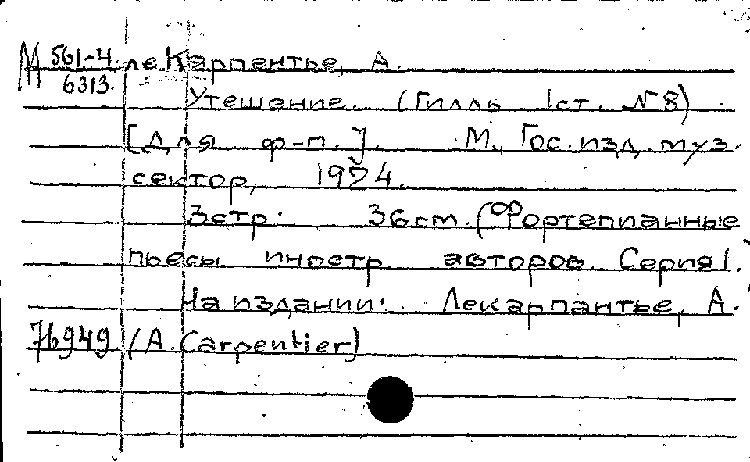 М 561-4 ле Карпентье, А.
6313.
Утешание. (Гилль 1ст. N8)
[Для ф-п.]. М, Гос. изд. муз.
сектор, 1924.
3стр. 36cm. (Фортепианные
пьесы иностр авторов. Серия I.
На издании: Лекарпантье, А.
76949 (A. Carpentier)